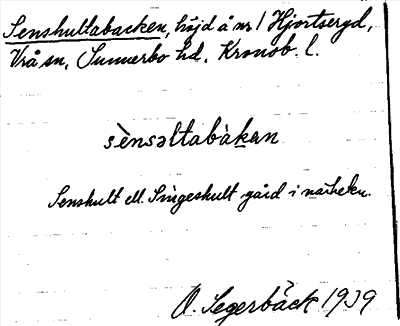 Senshultabacken, höjd å nr 1 Hjortseryd,
Vrå sn, Sunnerbo hd, Kronob. l.
sènsəltabàkan
Senshult ell. Singeshult gård i närheten.
O. Segerbäck 1939